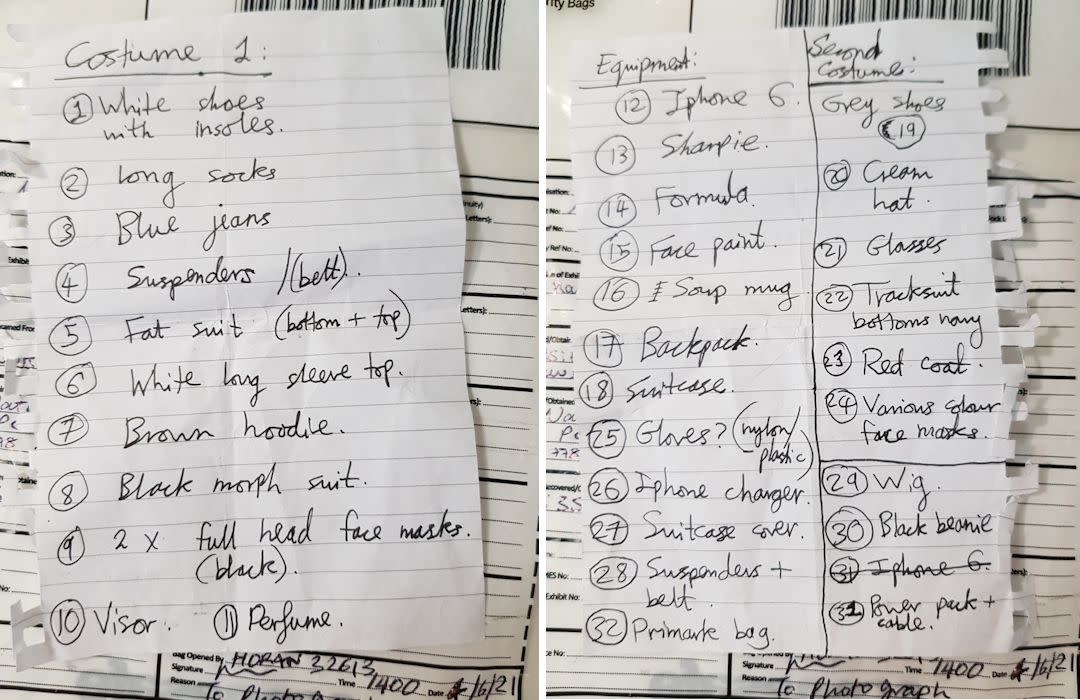 Costume 1:
① White shoes
with insoles.
② Long socks
③ Blue jeans
④ Suspenders /(belt).
⑤ Fat suit (bottom + top)
⑥ White long sleeve top.
⑦ Brown hoodie.
⑧ Black morph suit.
⑨ 2 x full head face masks.
(black).
⑩ Visor. ⑪ Perfume.
Bag Opened By HORAN 32613
Signature Time 1400 Date /6/21
Reason To Photograph
rity Bags
Equipment:
⑫ Iphone 6.
⑬ Sharpie.
⑭ Formula.
⑮ Face paint.
⑯ Soup mug
⑰ Backpack.
⑱ Suitcase.
㉕ Gloves? (nylon/
plastic)
㉖ Iphone charger.
㉗ Suitcase cover.
㉘ Suspenders +
belt.
㉜ Primark bag.
Second
Costume:
Grey shoes
⑲
⑳ Cream
hat.
㉑ Glasses
㉒ Tracksuit
bottoms navy
㉓ Red coat.
㉔ Various colour
face masks.
㉙ Wig.
㉚ Black beanie
㉛ Iphone 6.
㉛ Power pack +
cable.
Exhibit No:
Signature Time 1400 Date /6/21
Reason To Photograph